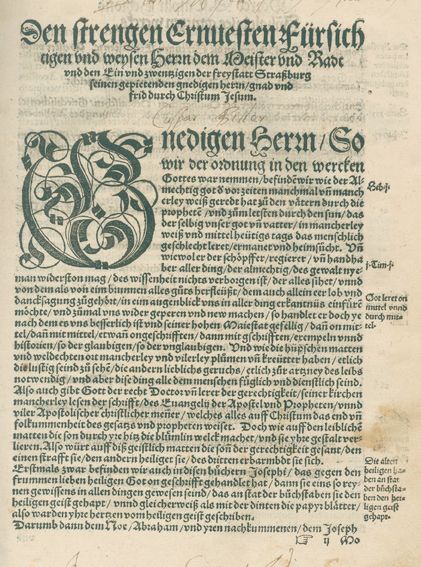 Den strengen Ernuesten Fürsich
tigen vnd weysen Herrn dem Meister vnd Radt
vnd den Ein vnd zwentzigen der freystatt Straßburg
seinen gepietenden gnedigen herrn/gnad vnd
frid durch Christum Jesum.
Gnedigen Herrn/So
wir der ordnung in den wercken
Gottes war nemmen/befinde wir wie der Al-
mechtig got ð vor zeiten manchmal vñ manch
erley weiß geredt hat zů den vätern durch die
prophetē/vnd zům letsten durch den sun/das
der selbig vnser got vñ vatter/in mancherley
weiß vnd mittel heütigs tags das menschlich
geschlecht leret/ermanet vnd heimsůcht. Vñ
wiewol er der schöpffer/regierer/vñ handha
ber aller ding/der almechtig/des gewalt nye-
man widerston mag/des wissenheit nichts verborgen ist/der alles sihet/vnnd
von dem als von eim brunnen alles gůts herfleüßt/dem auch allein eer lob vnd
dancksagung zůgehört/in eim augenblick vns in aller ding erkantnüs einfüre
möchte/vnd zůmal vns wider geperen vnd new machen/so handlet er doch ye
nach dem es vns besserlich ist vnd seiner hohen Maiestat gefellig/dañ on mit-
tel/dañ mit mittel/etwan on geschrifften/dann mit schrifften/exempeln vnnd
historien/so der glaubigen/so der vnglaubigen. Vnd wie die hüpschen matten
vnd weldechten ort mancherley vnd vilerley plůmen vñ kreütter haben/etlich
die lustig seind zů sehē/die andern lieblichs geruchs/etlich zůr artzney des leibs
notwendig/vnd aber dise ding alle dem menschen füglich vnd dienstlich seind.
Also auch gibt Gott der recht Doctor vñ lerer der gerechtigkeit/seiner kirchen
mancherley lesen der schrifft/des Euangelij der Apostel vnd Propheten/vnnd
viler Apostolischer christlicher mener/welches alles auff Christum das end vñ
folkummenheit des gesatzs vnd propheten weiset. Doch wie auff den leiblichē
matten die son durch yre hitz die blümlin welck machet/vnd sie yhr gestalt ver-
lieren. Also würt auff diß geistlich matten die son der gerechtigkeit genant/den
einen strafft sie/den andern heiliget sie/des dritten erbarmbdt sie sich.
Erstmals zwar befinden wir auch in disen büchern Josephi/das gegen den
frummen lieben heiligen Got on geschrifft gehandlet hat/dann sie eins so rey-
nen gewissens in allen dingen gewesen seind/das an stat der bůchstaben sie den
heiligen geist gehapt/vnnd gleicherweiß als mit der dinten die papyr blätter/
also warden yhre hertzen vom heiligen geist geschriben.
Darumb dann dem Noe/Abraham/vnd yren nachkummenen/dem Joseph
ij Mo
Heb.j.
j.Tim.j.
Got leret on
mittel vnnd
durch mit-
tel.
Die alten
heiligen ha
ben an stat
der bůchsta-
ben den hei-
ligen geist
gehapt.